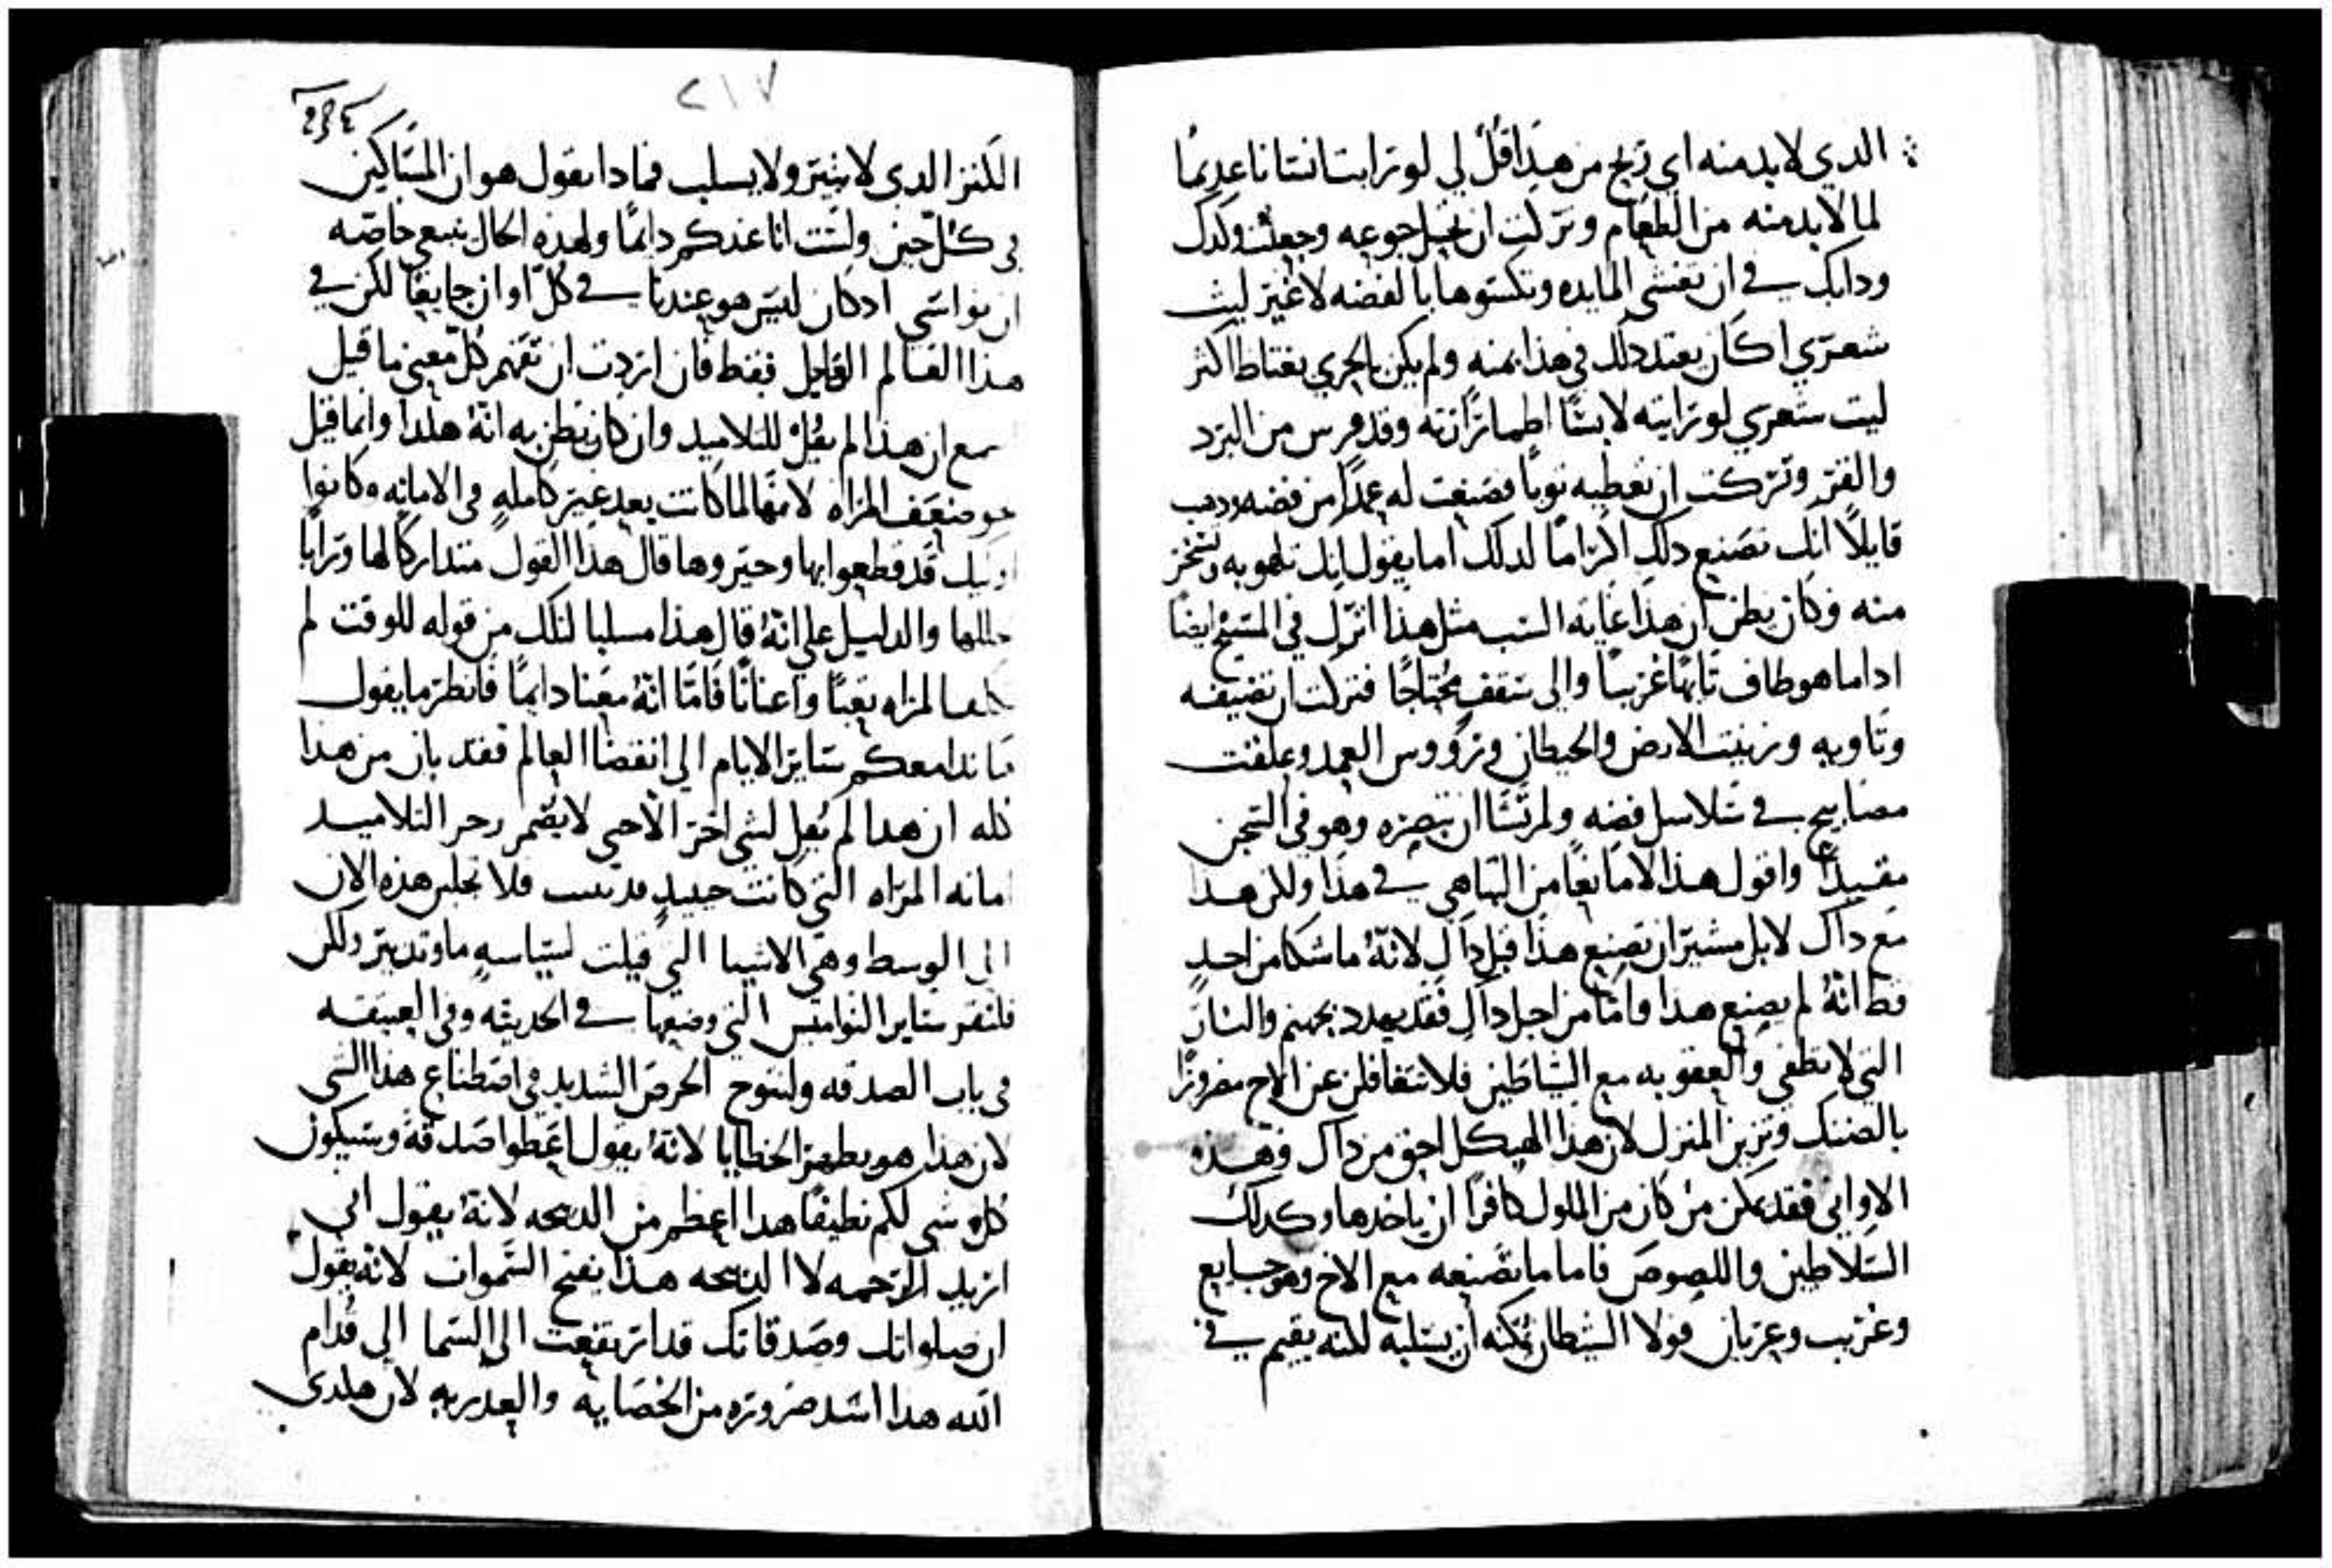 الدي لا بد منه اي ربح من هذا قل لي لو رايت انسانا عديمًا
لما لا بد منه من الطعام وتركت ان تحيل جوعه وجعلت وكدك
وداٮك في ان تغشي المايده وتكسوها بالفضه لا غير ليت
شعري اكان يعتد دلك في هذا بمنه ولم يكن بالحري يغتاظ اكثر
ليت شعري لو رايته لابسًا اطمارًا رثه وقد قرس من البرد
والقر وتركت ان تعطيه ثوبًا فصنعت له عمدًا من فضه ودهب
قايلًا انك تصنع دلك اكرامًا لدلك اما يقول انك تلهو به وتسخر
منه وكان يظن ان هذا غاية السب مثل هذا انزل في المسيح ايضًا
اداما هو طاف تايهًا غريبًا والي سقف محتاجًا فتركت ان تضيفه
وتاويه وزينت الارض والحيطان ورؤوس العمد وعلقت
مصابيح في سلاسل فضه ولم تشا ان تبصره وهو في السجن
مقيدًا واقول هذا لا مانعًا من التباهي في هذا ولكن هذا
مع داك لا بل مشيرًا ان تصنع هذا قبل داك لانهُ ما شكا من احدٍ
قط انهُ لم يصنع هذا واما من اجل داك فقد يهدد بجهنم والنار
التي لا تطفي والعقوبه مع الشياطين فلا تتغافلن عن الاخ مضرورًا
بالضنك وتزين المنزل لان هذا الهيكل احق من داك وهذه
الاواني فقد يمكن من كان من الملوك كافرًا ان ياخدها وكدلك
السلاطين واللصوص فاما ما تصنعه مع الاخ وهو جايع
وغريب وعريان فولا الشيطان يمكنه ان يسلبه لكنه يقيم في
٢١٧
الكنز الدي لا ينتر ولا يسلب فمادا يقول هو ان المساكين
في كل حين ولست انا عندكم دايمًا ولهده الحال ينبغي خاصه
ان نواسي ادكان ليس هو عندنا في كل اوان جايعًا لكن في
هذا العالم القليل فقط فان اردت ان تفهم كل معني ما قيل
مع ان هذا لم يقل للتلاميد وان كان يظن به انهُ هكدا وانما قيل
ضعف المراه لانها لما كانت بعد غير كامله في الامانه وكانوا
قد قطعوا بها وحيروها قال هذا القول متداركًا لها وترابا
والدليل علي انهُ قال هدا مسليا لتلك من قوله للوقت لم
المراه تعبًا واعناتًا فاما انهُ معنا دايمًا فانظر ما يقول
هاندا معكم ساير الايام الي انقضا العالم فقد بان من هدا
كله ان هدا لم يقل لشي اخر الا حي لا يضمر زجر التلاميد
امانه المراه التي كانت حينيدٍ قد نبت فلا تجلبن هذه الان
الي الوسط وهي الاشيا التي قيلت لسياسهٍ ما وتدبير ولكن
فلنقر ساير النواميس التي وضعها في الحديثه وفي العتيقه
في باب الصدقه ولنتوخ الحرص الشديد في اصطناع هذا الشي
لان هدا هو يطهر الخطايا لانهُ يقول اعطوا صدقه وسيكون
كل شي لكم نظيفًا هدا اعظم من الدبيحه لانهُ يقول اني
اريد الرحمه لا الدبيحه هذا يفتح السموات لانه يقول
ان صلواتك وصدقاتك قد ارتفعت الي السما الي قدام
الله هدا اشد ضروره من الخصايه والعدريه لان هكدي